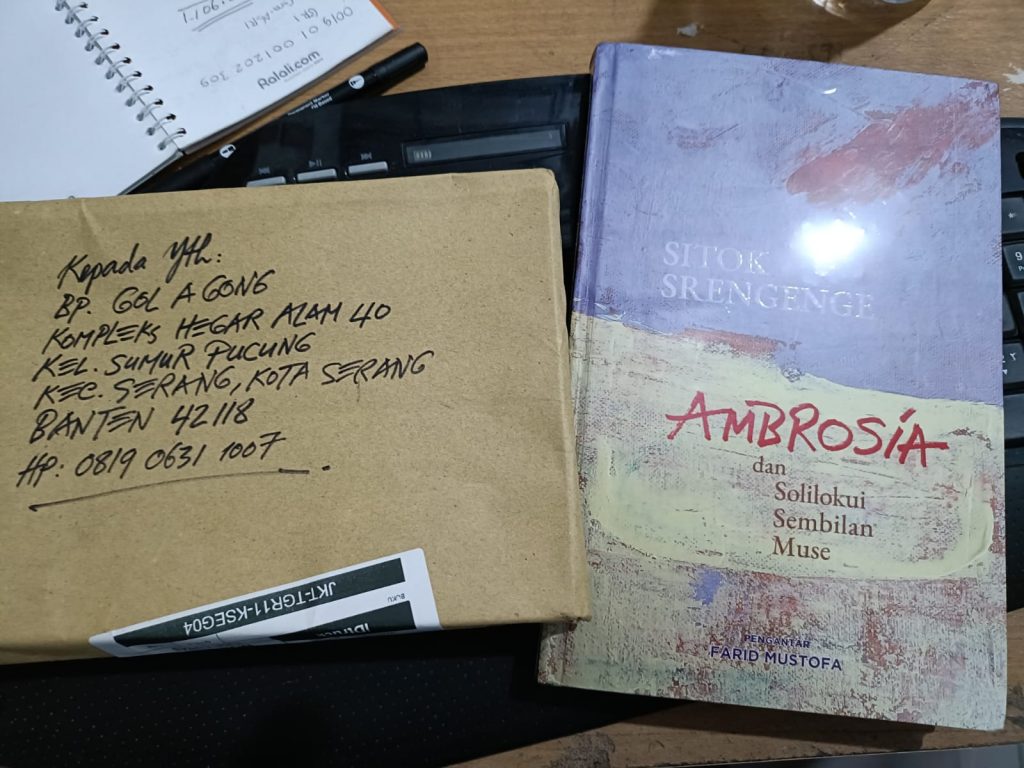 0019 01 001202 309
Ralali.com
Kepada Yth:
BP. GOL A GONG
KOMPLEKS HEGAR ALAM 40
KEL. SUMUR PUCUNG
KEC. SERANG, KOTA SERANG
BANTEN 42118
HP: 0819 0631 1007
JKT-TGR11-KSEG04
BUKU
SITOK
SRENGENGE
AMBROSIA
dan
Solilokui
Sembilan
Muse
PENGANTAR
FARID MUSTOFA